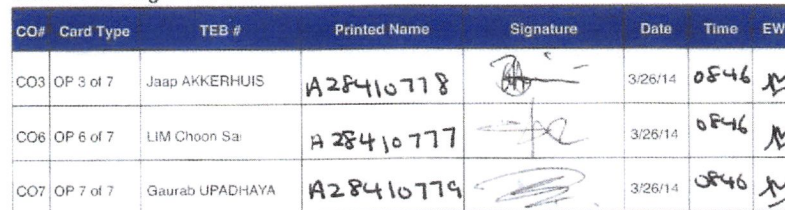 CO# Card Type TEB # Printed Name Signature Date Time EW
CO3 OP 3 of 7 Jaap AKKERHUIS A28410778 3/26/14 0846
CO6 OP 6 of 7 LIM Choon Sai A28410777 3/26/14 0846
CO7 OP 7 of 7 Gaurab UPADHAYA A28410779 3/26/14 0846